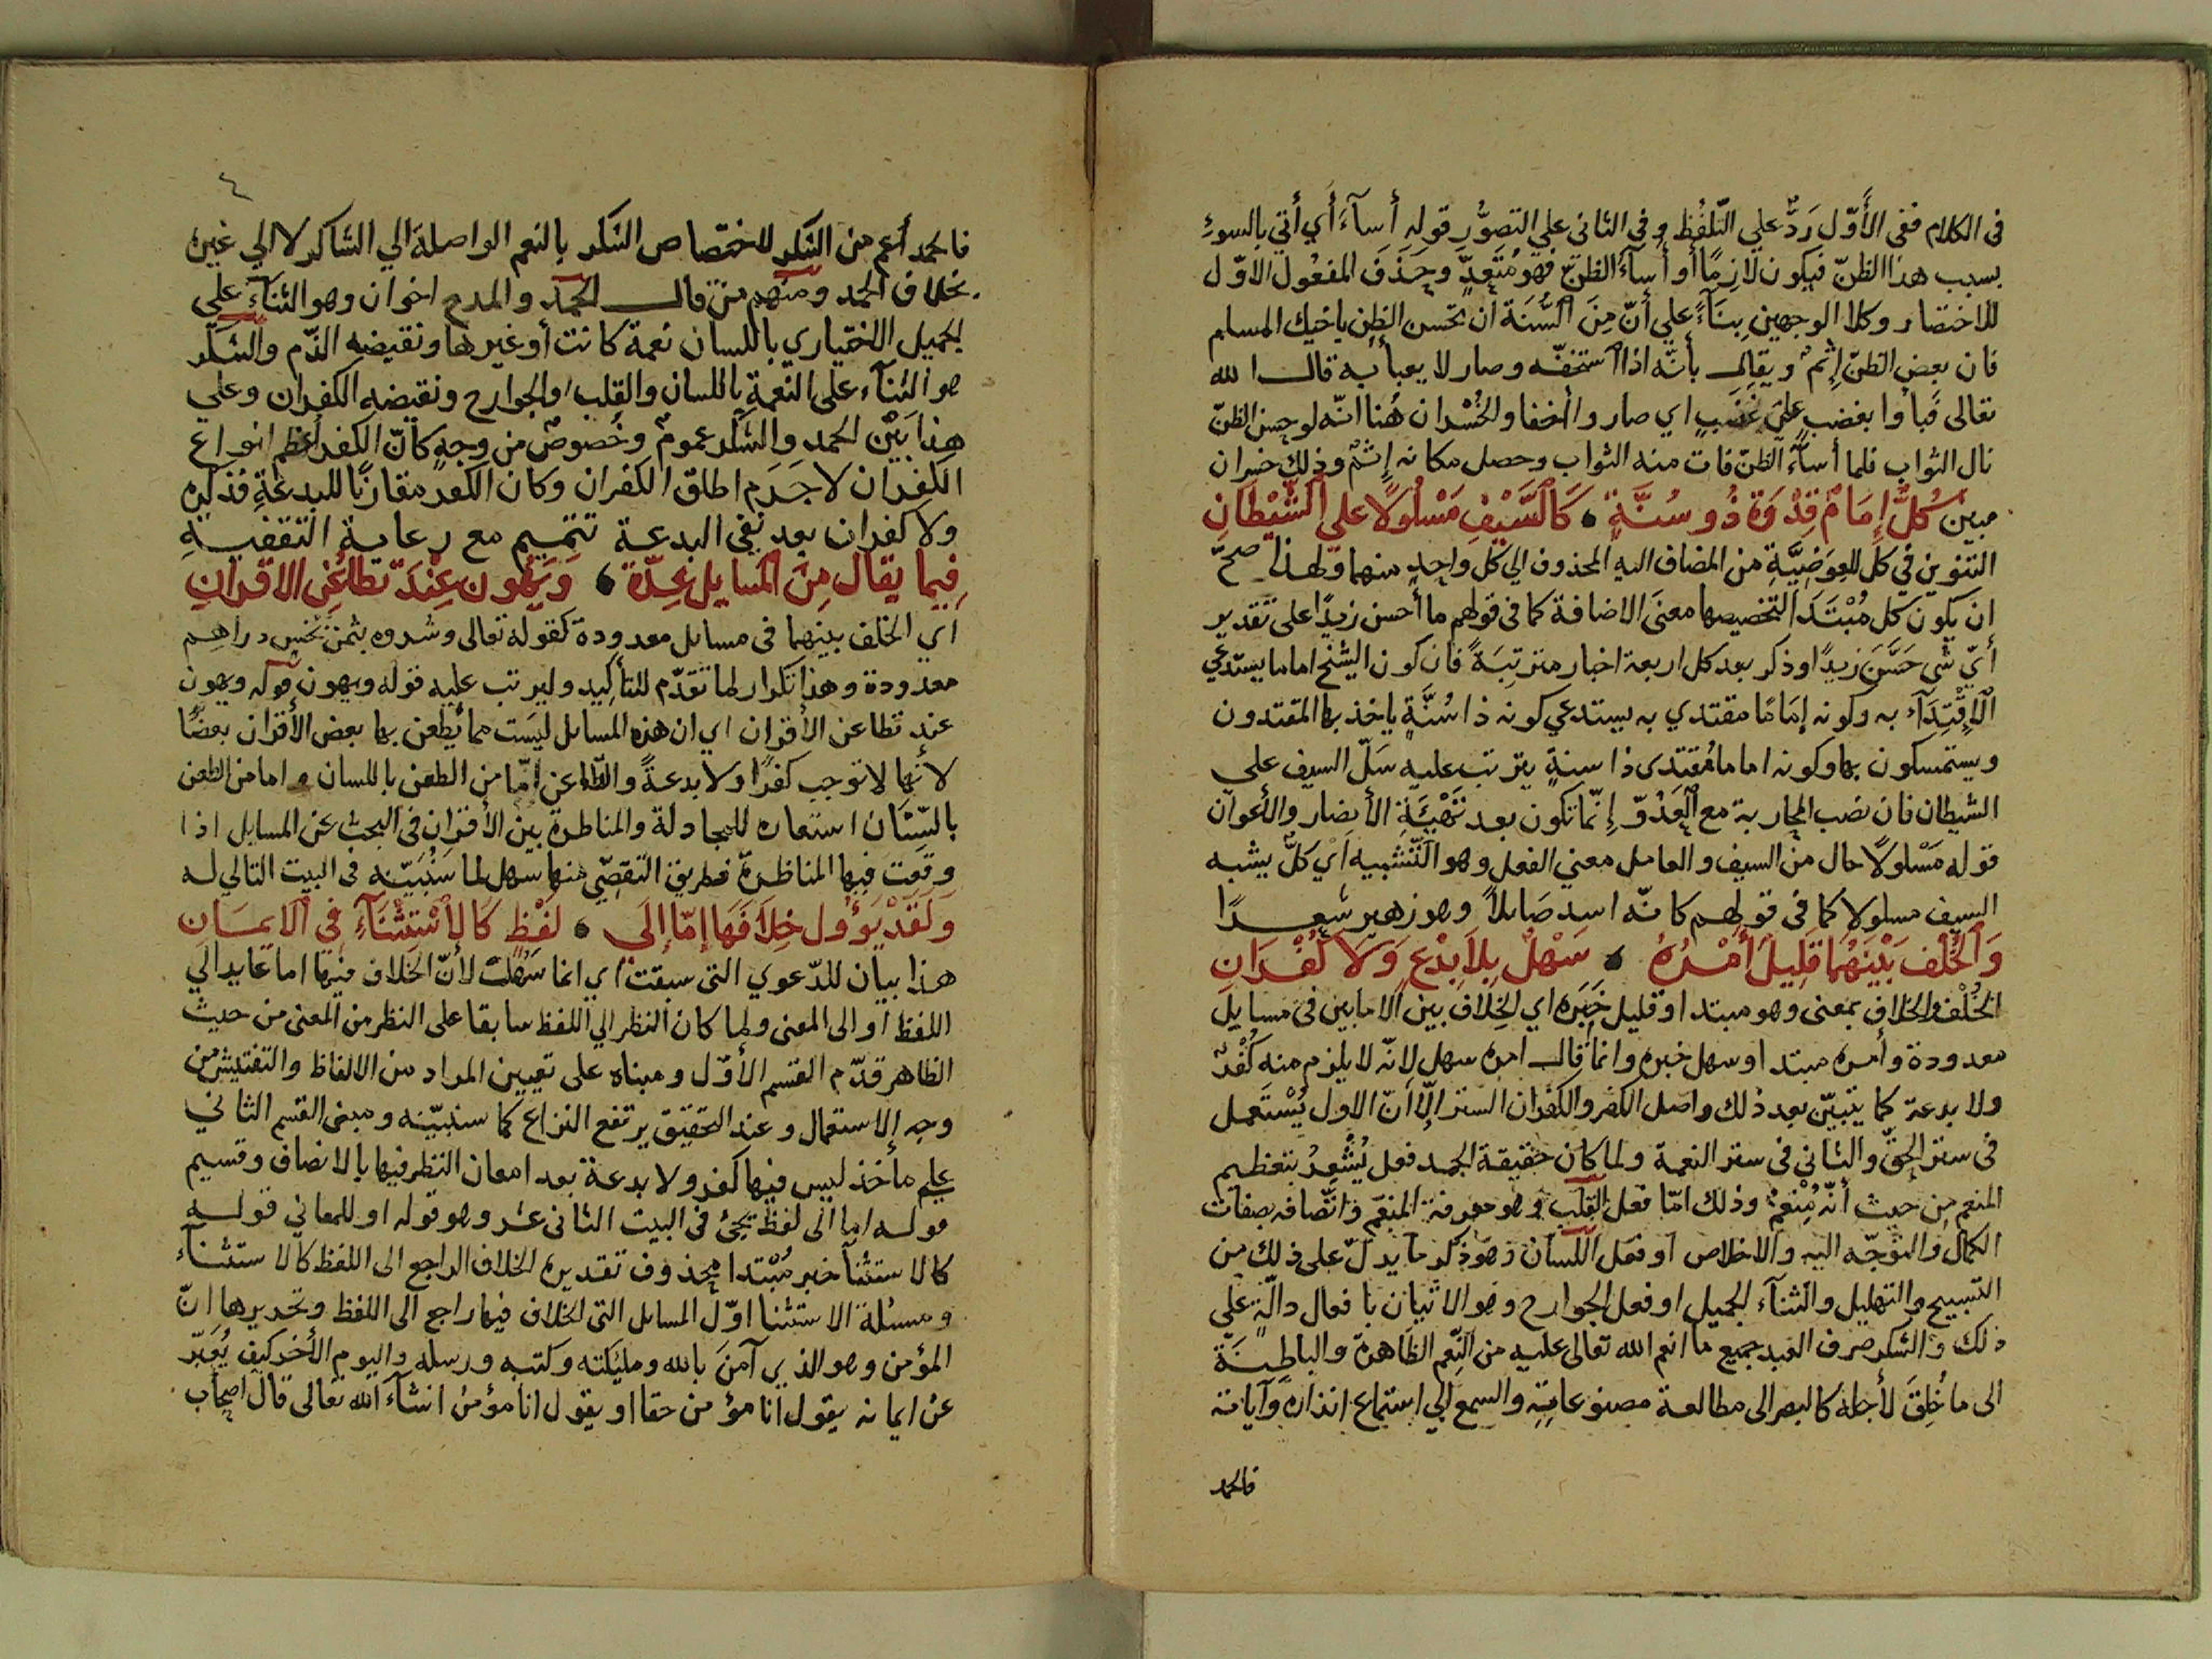 فى الكلام ففى الأَوّل رَدٌّ على التّلفُظ وفى الثانى على التصوُّر قوله أسآءَ أي أتي بالسوءِ
بسبب هذا الظنّ فيكون لازِمًا أو أسآءَ الظنّ فهو مُتَعدٍّ وحَذَفَ المفعُول الأوّل
للاختصار وكلا الوجهين بِنَآءً علي أنّ مِنَ السُّنَة ان تحسن الظن باخيك المسلم
فان بعض الظنّ إثمٌ ويقال بأنّه اذا استخفّه وصار لا يعبأ به قال الله
تعالى فَباوُا بغضب على غضب اي صاروا أخفا والخُسْران هُنا انّه لو حسن الظنّ
نال الثواب فلما أسآءَ الظنّ فات منه الثواب وحصل مكانه إثمٌ وذلك خسران
مبين كُلٌّ إمَامٌ قِدْوَةٌ ذُو سُنَّةٍ كَالسَّيْفِ مَسْلُولًا على الشَّيْطَانِ
التنوين في كل للعِوَضِيَّةِ من المضاف اليه المحذوف الي كل واحِدٍ منهما ولهذا صحّ
ان يكون كل مُبْتَدَا لتخصيصها معنَى الاضافة كما فى قولهم ما أحسن زيدًا على تقدير
أيّ شى حَسَّنَ زيدًا وذكر بعد كل اربعة اخبار مترتِبَةً فان كون الشخ اماما يستدعي
الاِقْتِدَآء به وكونه إمَامًا مقتدي به يستدعي كونه ذا سُنَّةٍ ياخذ بها المقتدون
ويستمسكون بها وكونه اماما مُقتدى ذا سنةٍ يترتب عليه سَلّ السيف علي
الشيطان فان نصب المحاربة مع العَدُوّ إنّما تكون بعد تَهْيِئَةِ الأنصار والأعوان
قوله مَسْلولًا حال من السيف والعامل معني الفعل وهو التَّشبيه أيْ كلٌّ يشبه
السيف مسلولا كما فى قولهم كانّه اسد صَايلاً وهو زهير شِعرًا
وَالخُلْفُ بَيْنَهُمَا قَلِيلٌ أَمْرُهُ سَهْلٌ بِلاَ بِدْعٍ وَلاَ كُفْرَانِ
الخُلْف والخلاف بمعنى وهو مبتدا وقليل خَبَره اي الخِلاف بين الامامين فى مسايل
معدودة وأمره مبتدا وسهل خبره وانما قال امره سهل لانّه لا يلزم منه كُفْرٌ
ولا بدعة كما يتبيّن بعد ذلك واصل الكفر والكفران الستر إلّا أنّ الاول يُسْتَعمل
فى ستر الحقّ والثانى فى ستر النعمة ولما كان حقيقة الحمد فعل يُشْعِرُ بتعظيم
المنعم من حيث أنّه مُنْعِمٌ وذلك امّا فعل القلب وهو معرفة المنعِم واتّصافه بصفات
الكمال والتوجّه اليه والاخلاص او فعل اللسان وهو ذكر ما يدلّ على ذلك من
التسبيح والتهليل والثنآء الجميل او فعل الجوارح وهو الاتيان بافعال دالّةٍ على
ذلك والشكر صرف العبد جميع ما انعم الله تعالى عليه من النِعَم الظاهرة والباطِنَةَ
الى ما خُلِقَ لأجله كالبصر الى مطالعة مصنوعاتِهِ والسمع الي استماع انذاره وآياته
فالحمد
٤
فالحمد أعم من الشكر لاختصاص الشكر بالنعم الواصلة الي الشاكر لا الي غيره
بخلاف الحمد ومنهم من قال الحمد والمدح اخوان وهو الثنآءُ علي
الجميل الاختياري باللسان نعمة كانت أو غيرها ونقيضه الذّم والشكر
هو الثنآء على النعمة باللسان والقلب والجوارح ونقيضه الكفران وعلي
هذا بَيْن الحمد والشكر عمومٌ وخُصوصٌ من وجهٍ كأنّ الكفر أعظم انواع
الكفران لا جَرَم اطلق الكفران وكان الكفر مقارنًا للبدعةِ فذكره
ولا كفران بعد نفى البدعة تتميم مع رعاية التقفية
فِيما يقال مِنَ المَسايل عِدّة وَيَهُون عِنْدَ تَطَاعُنِ الاقرانِ
اي الخلف بينهما فى مسايل معدودة كقوله تعالى وشروه بثمن بخس دراهم
معدودة وهذا تكرار لما تقدّم للتأكيد وليرتب عليه قوله ويهون قوله ويهون
عند تطاعن الأقران اي ان هذه المسايل ليسَت مما يُطعن بها بعض الأقران بعضًا
لأنّها لا توجب كفرًا ولا بدعةً والتطاعن إمّا من الطعن باللسان واما من الطعن
بالسِّنَان استعاره للمجادلة والمناظرة بين الأقران فى البحث عن المسايل اذا
وقعت فيها المناظرة فطريق التقصِّي منها سهل لما سَنُبَيّنه فى البيت التالي له
وَلَقَدْ يَؤُول خِلاَفَهَا إمّا إلَي لَفْظٍ كَالاِسْتِثْنَآءِ فِي الاَيمَانِ
هذا بيان للدّعوي التى سبقت اي انما سَهُلَت لأنّ الخلاف فيها اما عايد الي
اللفظ او الى المعنى ولما كان النظر الي اللفظ سابقا على النظر من المعنى من حيث
الظاهر قدّم القسم الأوّل ومبناه على تعيين المراد من الالفاظ والتفتيش من
وجه الاستعمال وعند التحقيق يرتفع النزاع كما سنبيّنه ومبنى القسم الثاني
علي مأخذ ليس فيها كفر ولا بدعة بعد امعان النظر فيها بالانصاف وقسيم
قوله اما الى لفظ يجئ فى البيت الثانى عشر وهو قوله او للمعاني قوله
كالاستثنآ خبر مُبْتدا محذوف تقديره الخلاف الراجع الى اللفظ كالاستثنآء
ومسئلة الاستثنا اوّل المسايل التى الخلاف فيها راجع الى اللفظ وتحريرها انّ
المؤمن وهو الذي آمنَ بالله ومليكته وكتبه ورسله واليوم الأخر كيف يُعَبّر
عن ايمانه يقول انا مؤمن حقا او يقول انا مؤمن انشآء الله تعالى قال اصحاب